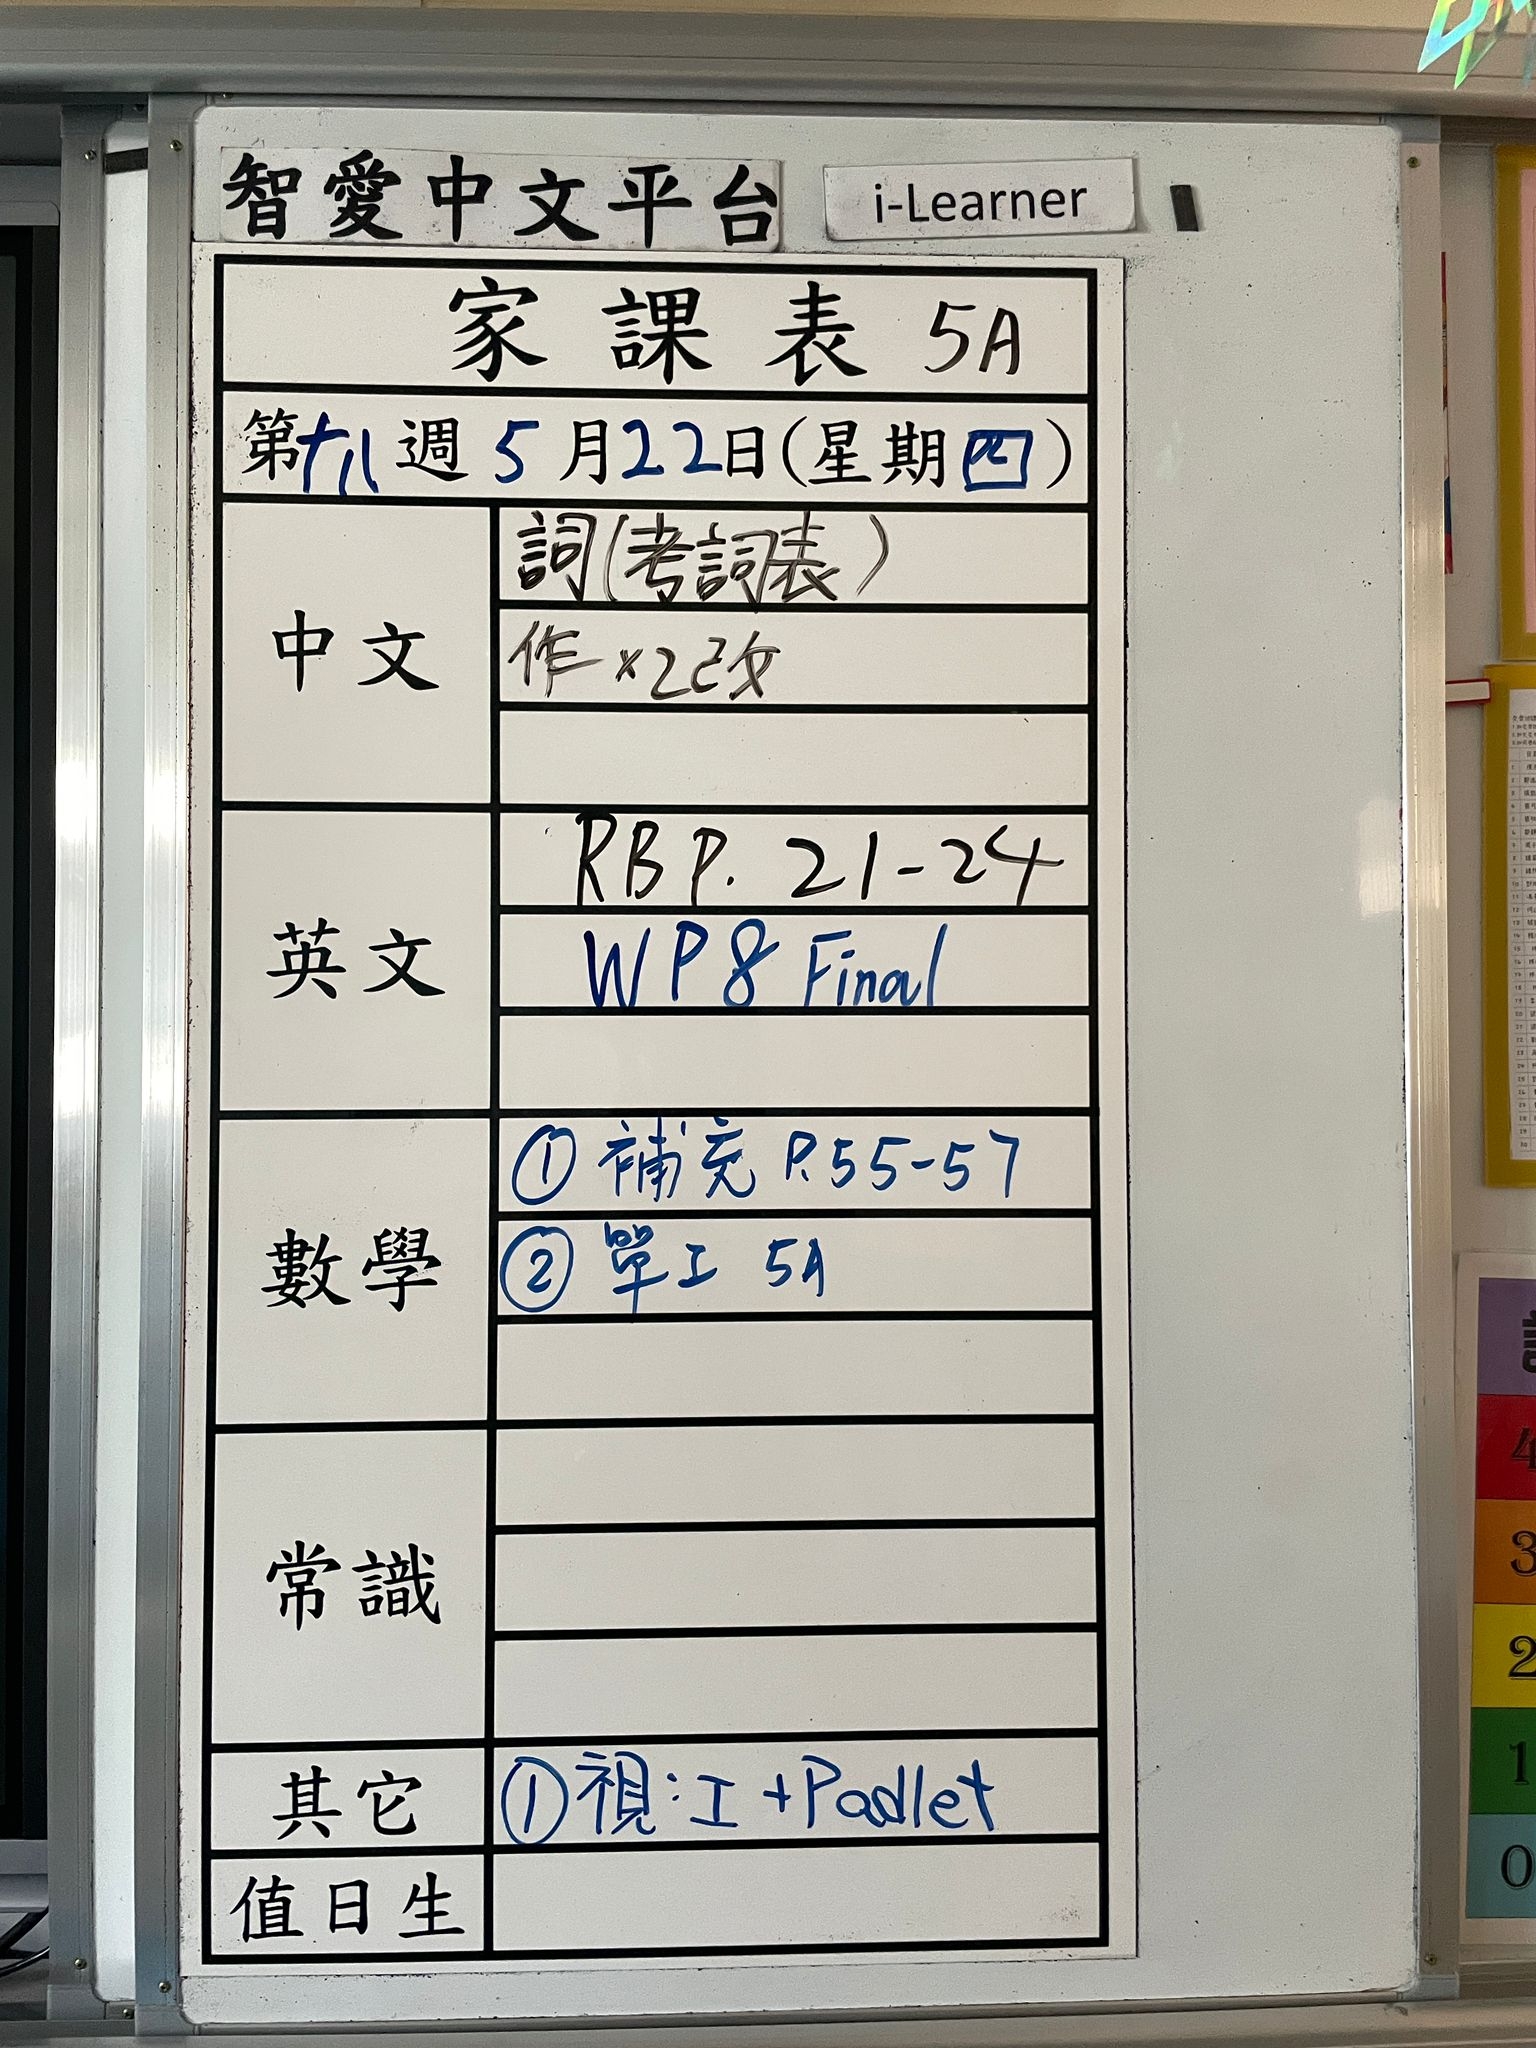 智愛中文平台 i-Learner
家課表 5A
第十八週 5月22日(星期四)
中文
詞(考詞表)
作×2改
英文
RB P. 21-24
WP8 Final
數學
① 補充 P.55-57
② 單工 5A
常識
其它
① 視:工+Padlet
值日生
4
3
2
1
0